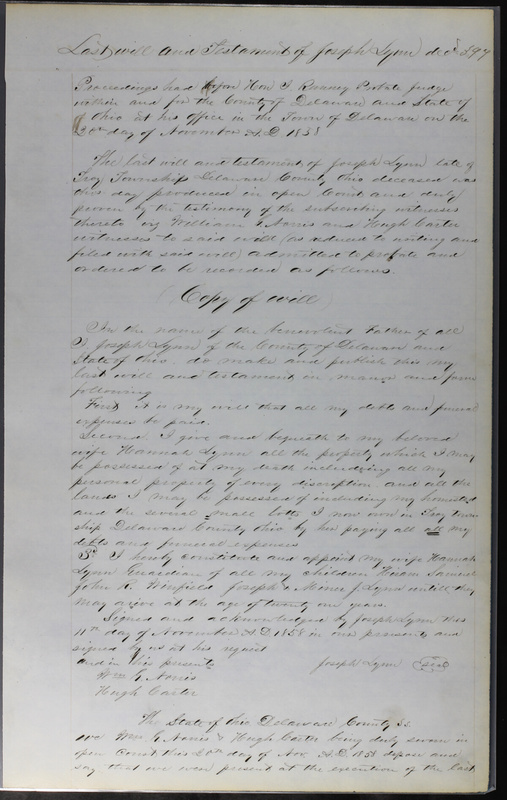 Last will and Testament of Joseph Lynn decd 397
Proceedings had before Hon T Ranney Probate Judge
within and for the County of Delaware and State of
Ohio at his office in the Town of Delaware on the
20th day of November A.D 1858
The last will and testament of Joseph Lynn late of
Troy Township Delaware County Ohio deceased was
this day produced in open Court and duly
proven by the testimony of the subscribing witnesses
thereto viz William G. Norris and Hugh Carter
witnesses to said will (as reduced to writing and
filed with said will) admitted to probate and
ordered to be recorded as follows.
(Copy of Will)
In the name of the benevolent Father of all
I, Joseph Lynn of the County of Delaware and
State of Ohio, do make and publish this my
last will and testament in manner and form
following
First, it is my will that all my debts and funeral
expenses be paid.
Second. I give and bequeath to my beloved
wife Hannah Lynn all the property which I may
be possessed of at my death including all my
personal property of every discription and all the
lands I may be possessed of including my homested
and the several small lotts I now own in Troy town
ship Delaware County Ohio by her paying all all my
debts and funeral expenses
3d I hereby constitute and appoint my wife Hannah
Lynn Guardian of all my children Hiram Samuel
John R. Winfield Joseph & Miner J Lynn untill they
may arive at the age of twenty one years.
Signed and acknowledged by Joseph Lynn this
11th day of November A.D. 1858 in our presents and
signed by us at his request
and in his presents Joseph Lynn (seal)
Wm G. Norris
Hugh Carter
The State of Ohio Delaware County ss
we Wm G. Norris & Hugh Carter being duly sworn in
open Court this 20th day of Nov A.D. 1858 depose and
say that we were present at the execution of the last